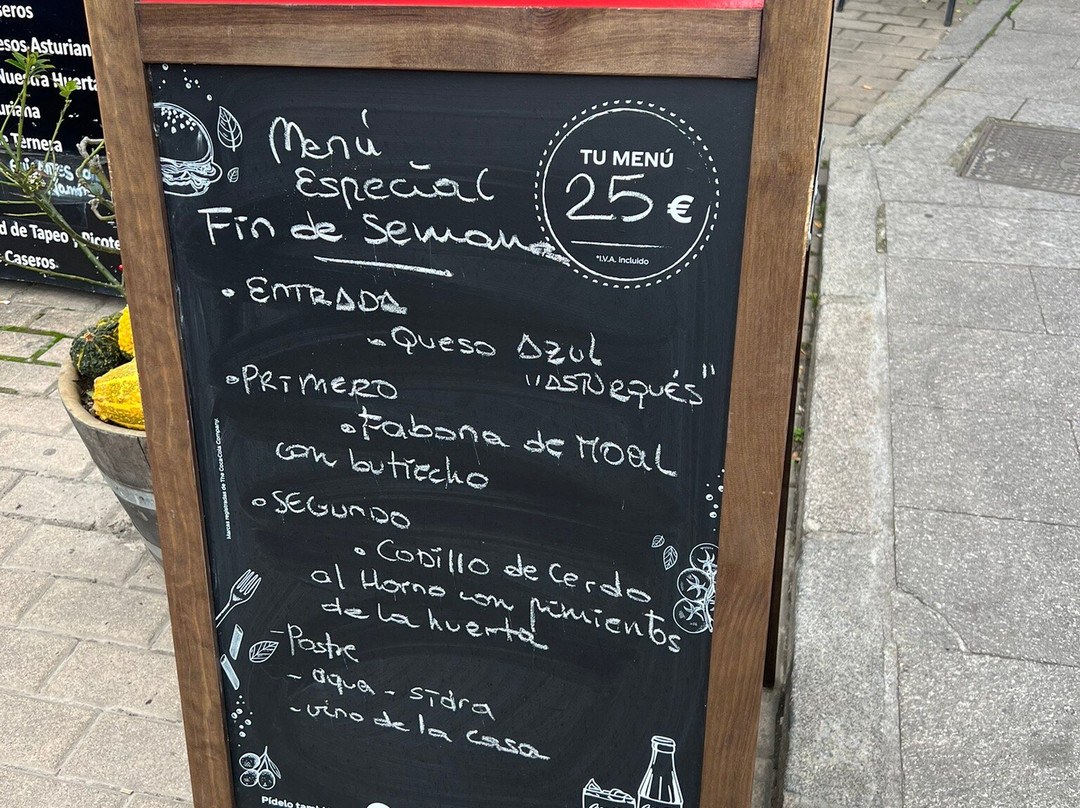 seros
esos Asturian
Nuestra Huerta
uriana
Ternera
d de Tapeo y picote
Caseros
Menú
Especial
Fin de Semana
TU MENÚ
25 €
*I.V.A. incluido
• ENTRADA
- Queso AZUL
"ASTURQUÉS"
• PRIMERO
• Fabona de MOAL
con butiecho
• SEGUNDO
• CODILLO de Cerdo
al Horno con pimientos
de la huerta
- Postre
- agua - sidra
- vino de la casa
Marcas registradas de The Coca-Cola Company.
Pídelo tambi